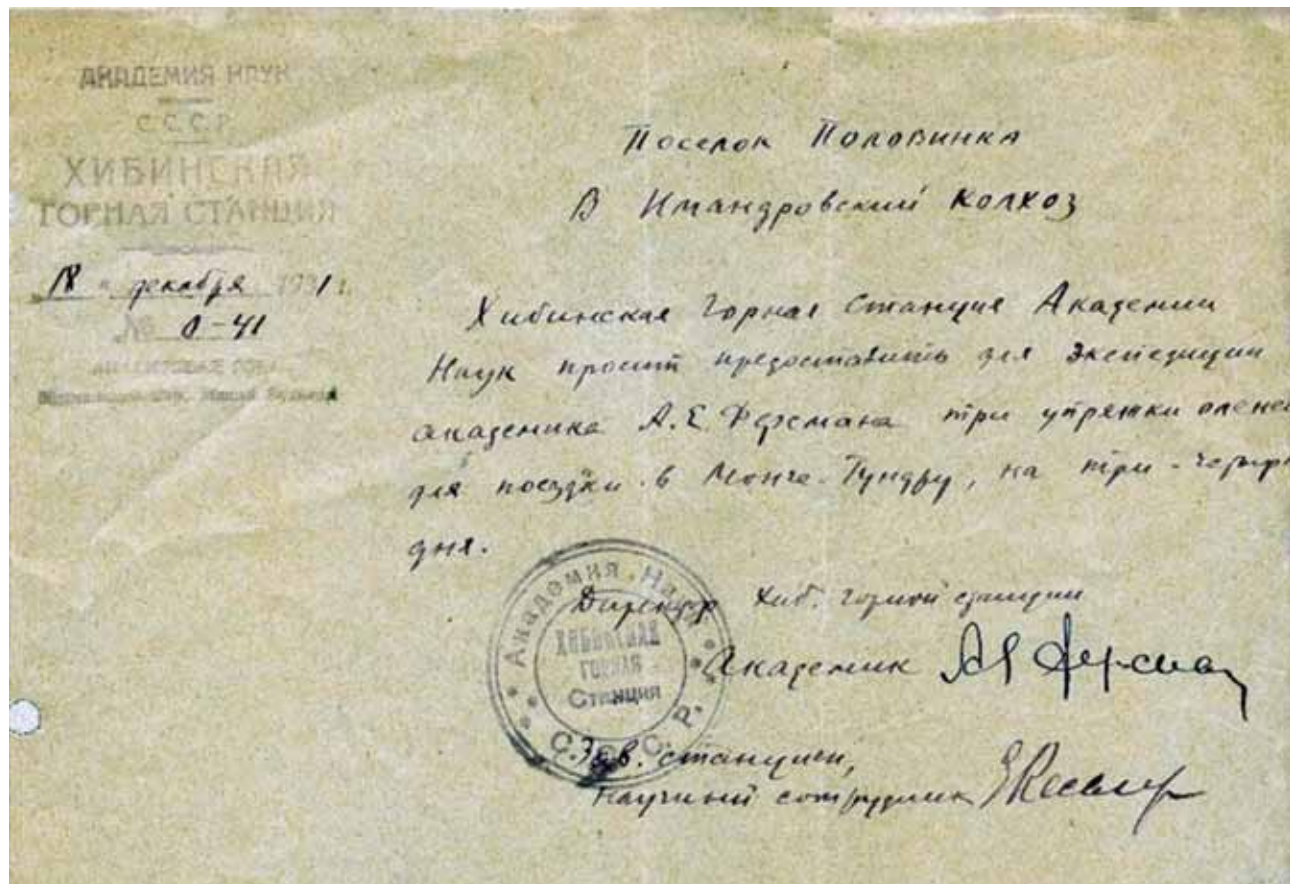 АКАДЕМИЯ НАУК
С.С.С.Р.
ХИБИНСКАЯ
ГОРНАЯ СТАНЦИЯ
18 " декабря 1931 г.
№ 0-41
Поселок Половинка
В Имандровский колхоз
Хибинская Горная Станция Академии
Наук просит предоставить для экспедиции
академика А.Е Ферсмана три упряжки оленей
для поездки в Монче-Тундру, на три-четыре
дня.
Директор Хиб. Горной станции
Академик
Зав. станции,
Научный сотрудник
Академия Наук
ХИБИНСКАЯ
ГОРНАЯ
Станция
С.С.С.Р.